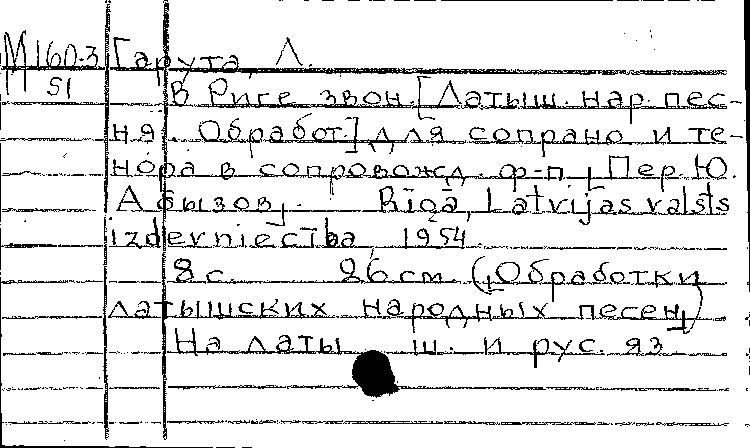 М160-3 Гарута, Л.
51
В Риге звон. [Латыш. нар. пес-
ня. Обработ.] для сопрано и те-
нора в сопровожд. ф-п. [Пер. Ю.
Абызов]. Rīgā, Latvijas valsts
izdevniecība, 1954.
8 с. 26 см. ([Обработки
латышских народных песен])
На латы ш. и рус. яз.